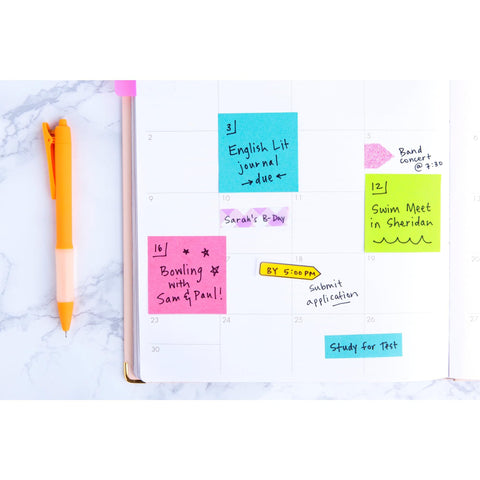 2
3
English Lit
journal
→due←
5
Band
concert
@ 7:30
9
10
Sarah's B-Day
11
12
Swim Meet
in Sheridan
16
Bowling
with
Sam & Paul!
BY 5:00PM
Submit
application
19
23
24
25
26
Study for Test
30